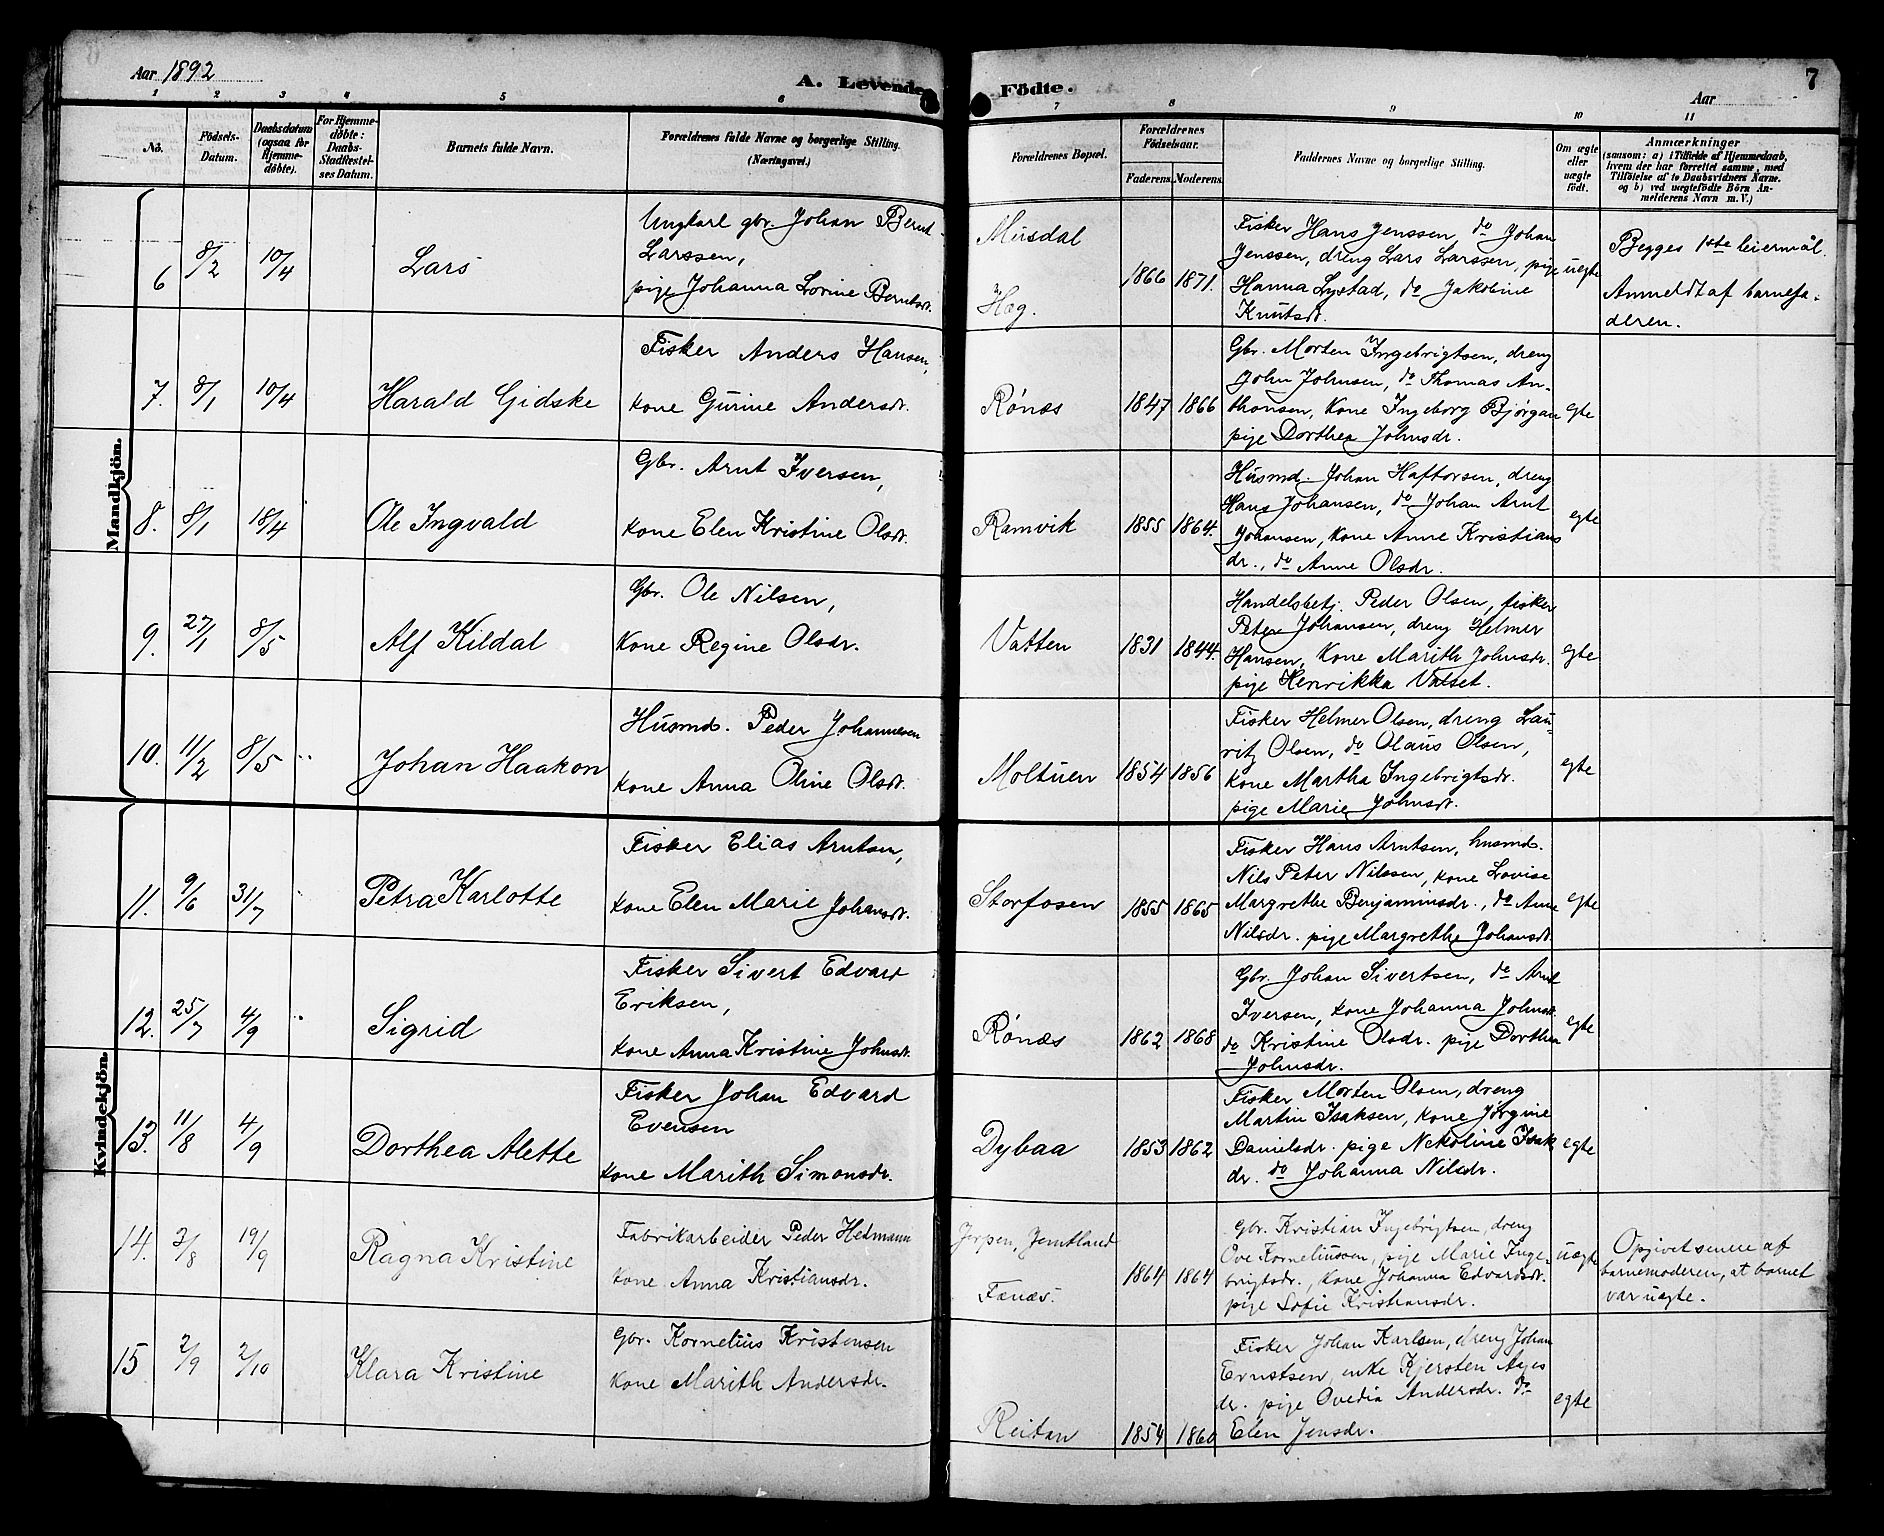 Aar 1892
A. Levende
Födte.
Aar
7
1 2 3 4 5 6 7 8 9 10 11
No.
Födsels-
Datum.
Daabsdatum
(ogsaa for
Hjemme-
döbte).
For Hjemme-
döbte:
Daabs-
Stadfæstel-
ses Datum.
Barnets fulde Navn.
Forældrenes fulde Navne og borgerlige Stilling.
(Næringsvei.)
Forældrenes Bopæl.
Forældrenes
Födselsaar.
Faderens. Moderens.
Faddernes Navne og borgerlige Stilling.
Om ægte
eller
uægte
födt.
Anmærkninger
(saasom: a) i Tilfælde af Hjemmedaab,
hvem der har forrettet samme, med
Tilföielse af to Daabsvidners Navne.
og b) ved uægtefödte Börn An-
melderens Navn m. V.)
Mandkjön.
6 8/2 10/4 Lars
Ungkarl gbr. Johan Bernt
Larssen,
pige Johanna Lovine Berntsdr.
Mirsdal
Hæg.
1866 1871.
Fisker Hans Jenssen, do Johan
Jenssen, dreng Lars Larssen, pige
Hanna Lystad, do Jakobine
Knutsdr.
uegte
Begges 1ste leiermål.
Anmeldt af barnefa-
deren.
7. 8/1 10/4 Harald Gidske
Fisker Anders Hansen,
kone Gurine Andersdr.
Rønæs 1847 1866
Gbr. Morten Ingebrigtsen, dreng
John Johnsen, do Thomas An-
thonsen, kone Ingeborg Bjørgan
pige Dorthea Johnsdr.
egte
8. 8/1 18/4 Ole Ingvald
Gbr. Arnt Iversen,
kone Elen Kristine Olsdr.
Ramvik 1855 1864.
Husmd. Johan Haftorsen, dreng
Hans Johansen, do Johan Arnt
Johansen, kone Anne Kristians
dr., do Anne Olsdr.
egte
9. 27/1 8/5 Alf Kildal
Gbr. Ole Nilsen,
Kone Regine Olsdr.
Vatten 1831 1844.
Handelsbetj. Peder Olsen, fisker
Peter Johansen, dreng Helmer
Hansen, kone Marith Johnsdr.
pige Henrikka Valset.
egte
10. 11/2 8/5 Johan Haakon
Husmd. Peder Johannesen
kone Anna Oline Olsdr.
Moltuen 1854 1856
Fisker Helmer Olsen, dreng Lau-
ritz Olsen, do Olaus Olsen,
kone Martha Ingebrigtsdr.
pige Marie Johnsdr.
egte
Kvindekjön.
11. 9/6 31/7 Petra Karlotte
Fisker Elias Arntsen,
kone Elen Marie Johansdr.
Storfosen 1855 1865
Fisker Hans Arntsen, husmd.
Nils Peter Nilssen, kone Lovise
Margrethe Benjaminsdr., do Anne
Nilsdr. pige Margrethe Johansdr.
egte
12. 25/7 4/9 Sigrid
Fisker Sivert Edvard
Eriksen,
kone Anna Kristine Johnsdr.
Rønæs 1862 1868
Gbr. Johan Sivertsen, do Arnt
Iversen, kone Johanna Johnsdr.
do Kristine Olsdr. pige Dorthea
Johnsdr.
egte
13. 11/8 4/9 Dorthea Alette
Fisker Johan Edvard
Evensen
kone Marith Simonsdr.
Dybaa 1853 1862
Fisker Morten Olsen, dreng
Martin Isaksen, kone Jørgine
Danielsdr. pige Nekoline Isak
dr. do Johanna Nilsdr.
egte
14. 2/8 19/9 Ragna Kristine
Fabrikarbeider Peder Hedmann
kone Anna Kristiansdr.
Jerpen, Jemtland
Fænæs.
1864 1864
Gbr. Kristian Ingebrigtsen, dreng
Ove Korneliussen, pige Marie Inge-
brigtsdr., kone Johanna Edvardsdr.
pige Sofie Kristiansdr.
uegte
Opgivet senere af
barnemoderen, at barnet
var uægte.
15 2/9 2/10 Klara Kristine
Gbr. Kornelius Kristensen
kone Marith Andersdr.
Reitan 1854 1860
Fisker Johan Karlsen, dreng Johan
Ernstsen, enke Kjersten Ages
dr. pige Ovedia Andersdr. do
Elen Jensdr.
egte